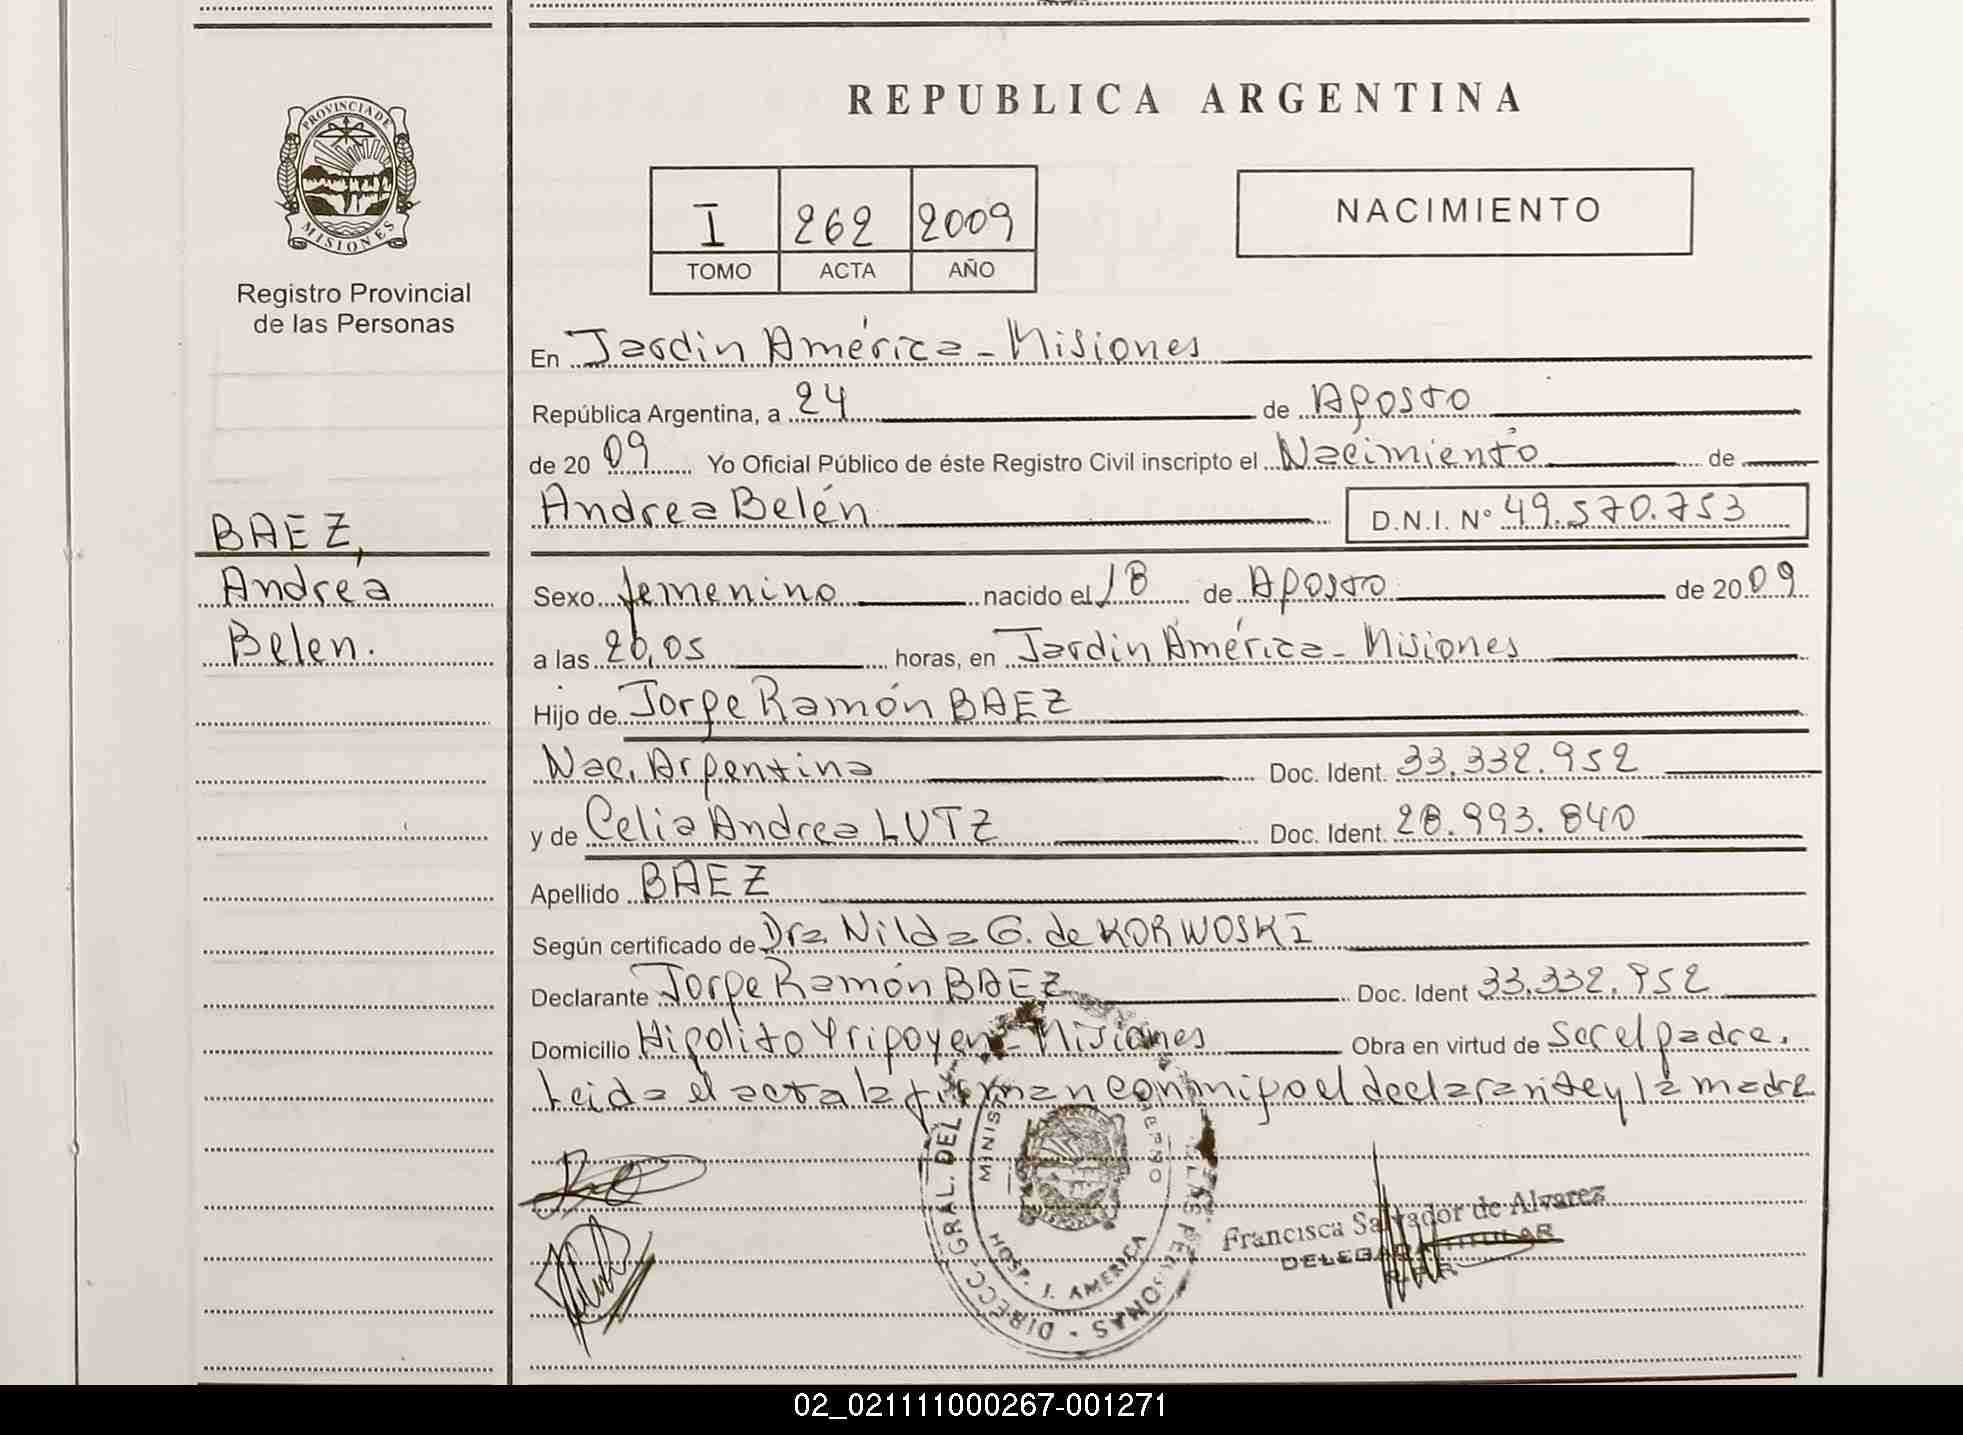 REPUBLICA ARGENTINA
PROVINCIA DE
MISIONES
Registro Provincial
de las Personas
I 262 2009
TOMO ACTA AÑO
NACIMIENTO
En Jardín América - Misiones
República Argentina, a 24 de Agosto
de 2009 Yo Oficial Público de éste Registro Civil inscripto el Nacimiento de
Andrea Belén D.N.I. Nº 49.570.753
BAEZ,
Andrea
Belen.
Sexo femenino nacido el 18 de Agosto de 2009
a las 20,05 horas, en Jardín América - Misiones
Hijo de Jorge Ramón BAEZ
Nac. Argentina Doc. Ident. 33.332.952
y de Celia Andrea LUTZ Doc. Ident. 28.993.840
Apellido BAEZ
Según certificado de Dra. Nilda G. de KORWOSKI
Declarante Jorge Ramón BAEZ Doc. Ident 33.332.952
Domicilio Hipolito Yrigoyen - Misiones Obra en virtud de ser el padre.
Leida el acta la firman conmigo el declarante y la madre
DIRECC. GRAL. DEL PERSONAS
HOSP. J. AMERICA
Francisca Salvador de Alvarez
DELEGADA TITULAR
02_021111000267-001271